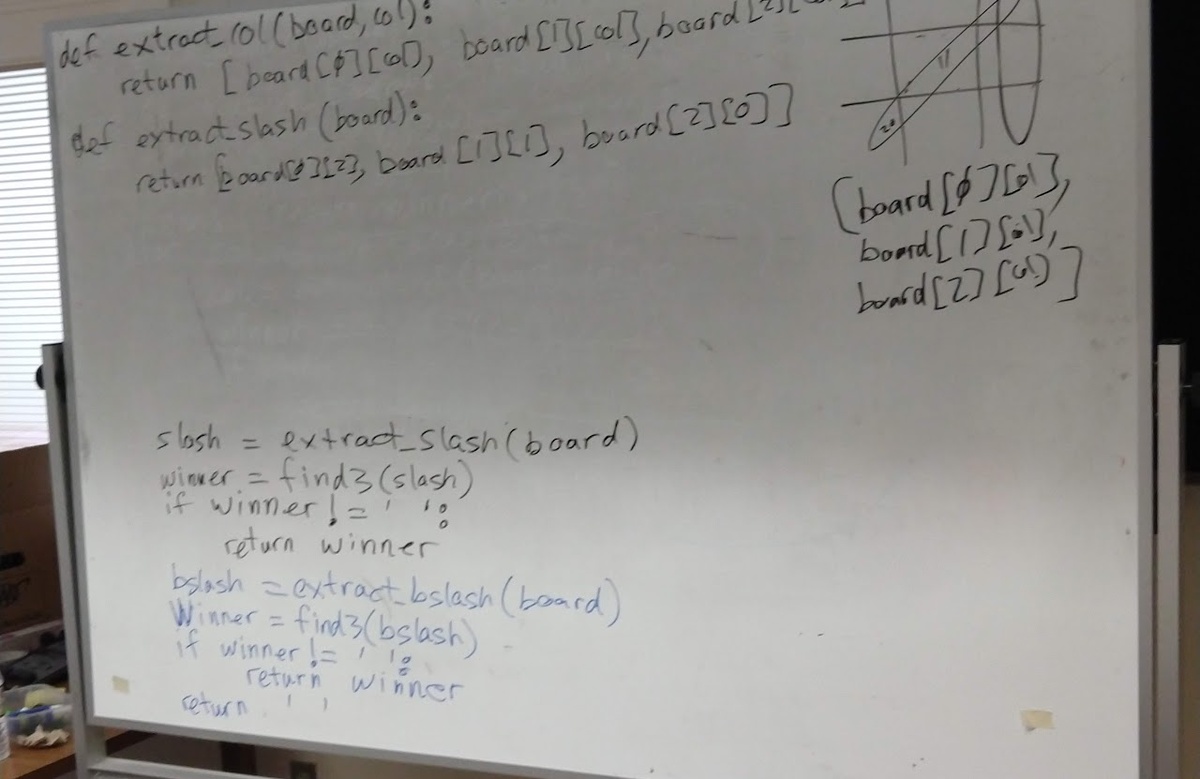 def extract_col(board, col):
return [board[ø][col], board[1][col], board[2][col]
def extract_slash(board):
return [board[ø][2], board[1][1], board[2][0]]
11
20
[board[ø][col],
board[1][col],
board[2][col]]
slash = extract_slash(board)
winner = find3(slash)
if winner != ' ':
return winner
bslash = extract_bslash(board)
Winner = find3(bslash)
if winner != ' ':
return winner
return ' '